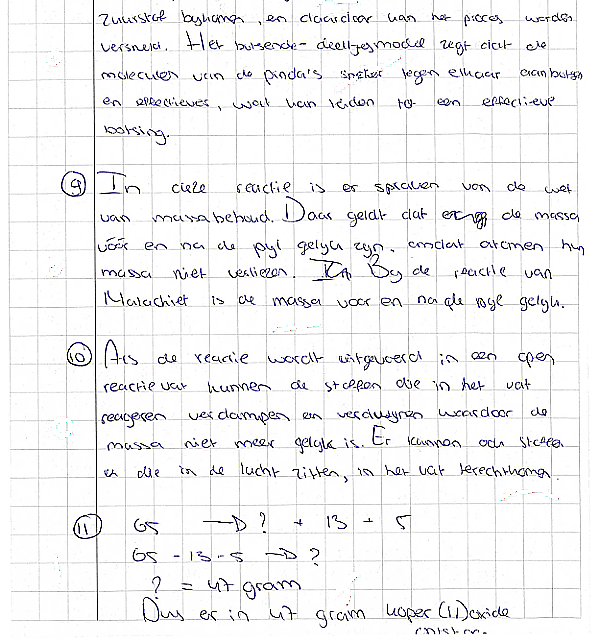 zuurstof bijkomen, en daardoor kan het proces worden
versneld. Het botsende-deeltjesmodel zegt dat de
moleculen van de pinda's sneller tegen elkaar aanbotsen
en effectiever, wat kan leiden tot een effectieve
botsing.
9 In deze reactie is er spraken van de wet
van massabehoud. Daar geldt dat de massa
vóór en na de pijl gelijk zijn. omdat atomen hun
massa niet verliezen. Bij de reactie van
Malachiet is de massa voor en na de pijl gelijk.
10 Als de reactie wordt uitgevoerd in een open
reactievat kunnen de stoffen die in het vat
reageren verdampen en verdwijnen waardoor de
massa niet meer gelijk is. Er kunnen ook stoffen
die in de lucht zitten, in het vat terechtkomen.
11 65 → ? + 13 + 5
65 - 13 - 5 → ?
? = 47 gram
Dus er is 47 gram koper(II)oxide